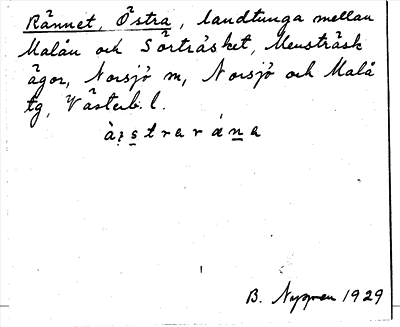 Rännet, Östra, landtunga mellan
Malån och Sörträsket, Mensträsk
ägor, Norsjö sn, Norsjö och Malå
tg, Västerb. l.
B. Nygren 1929